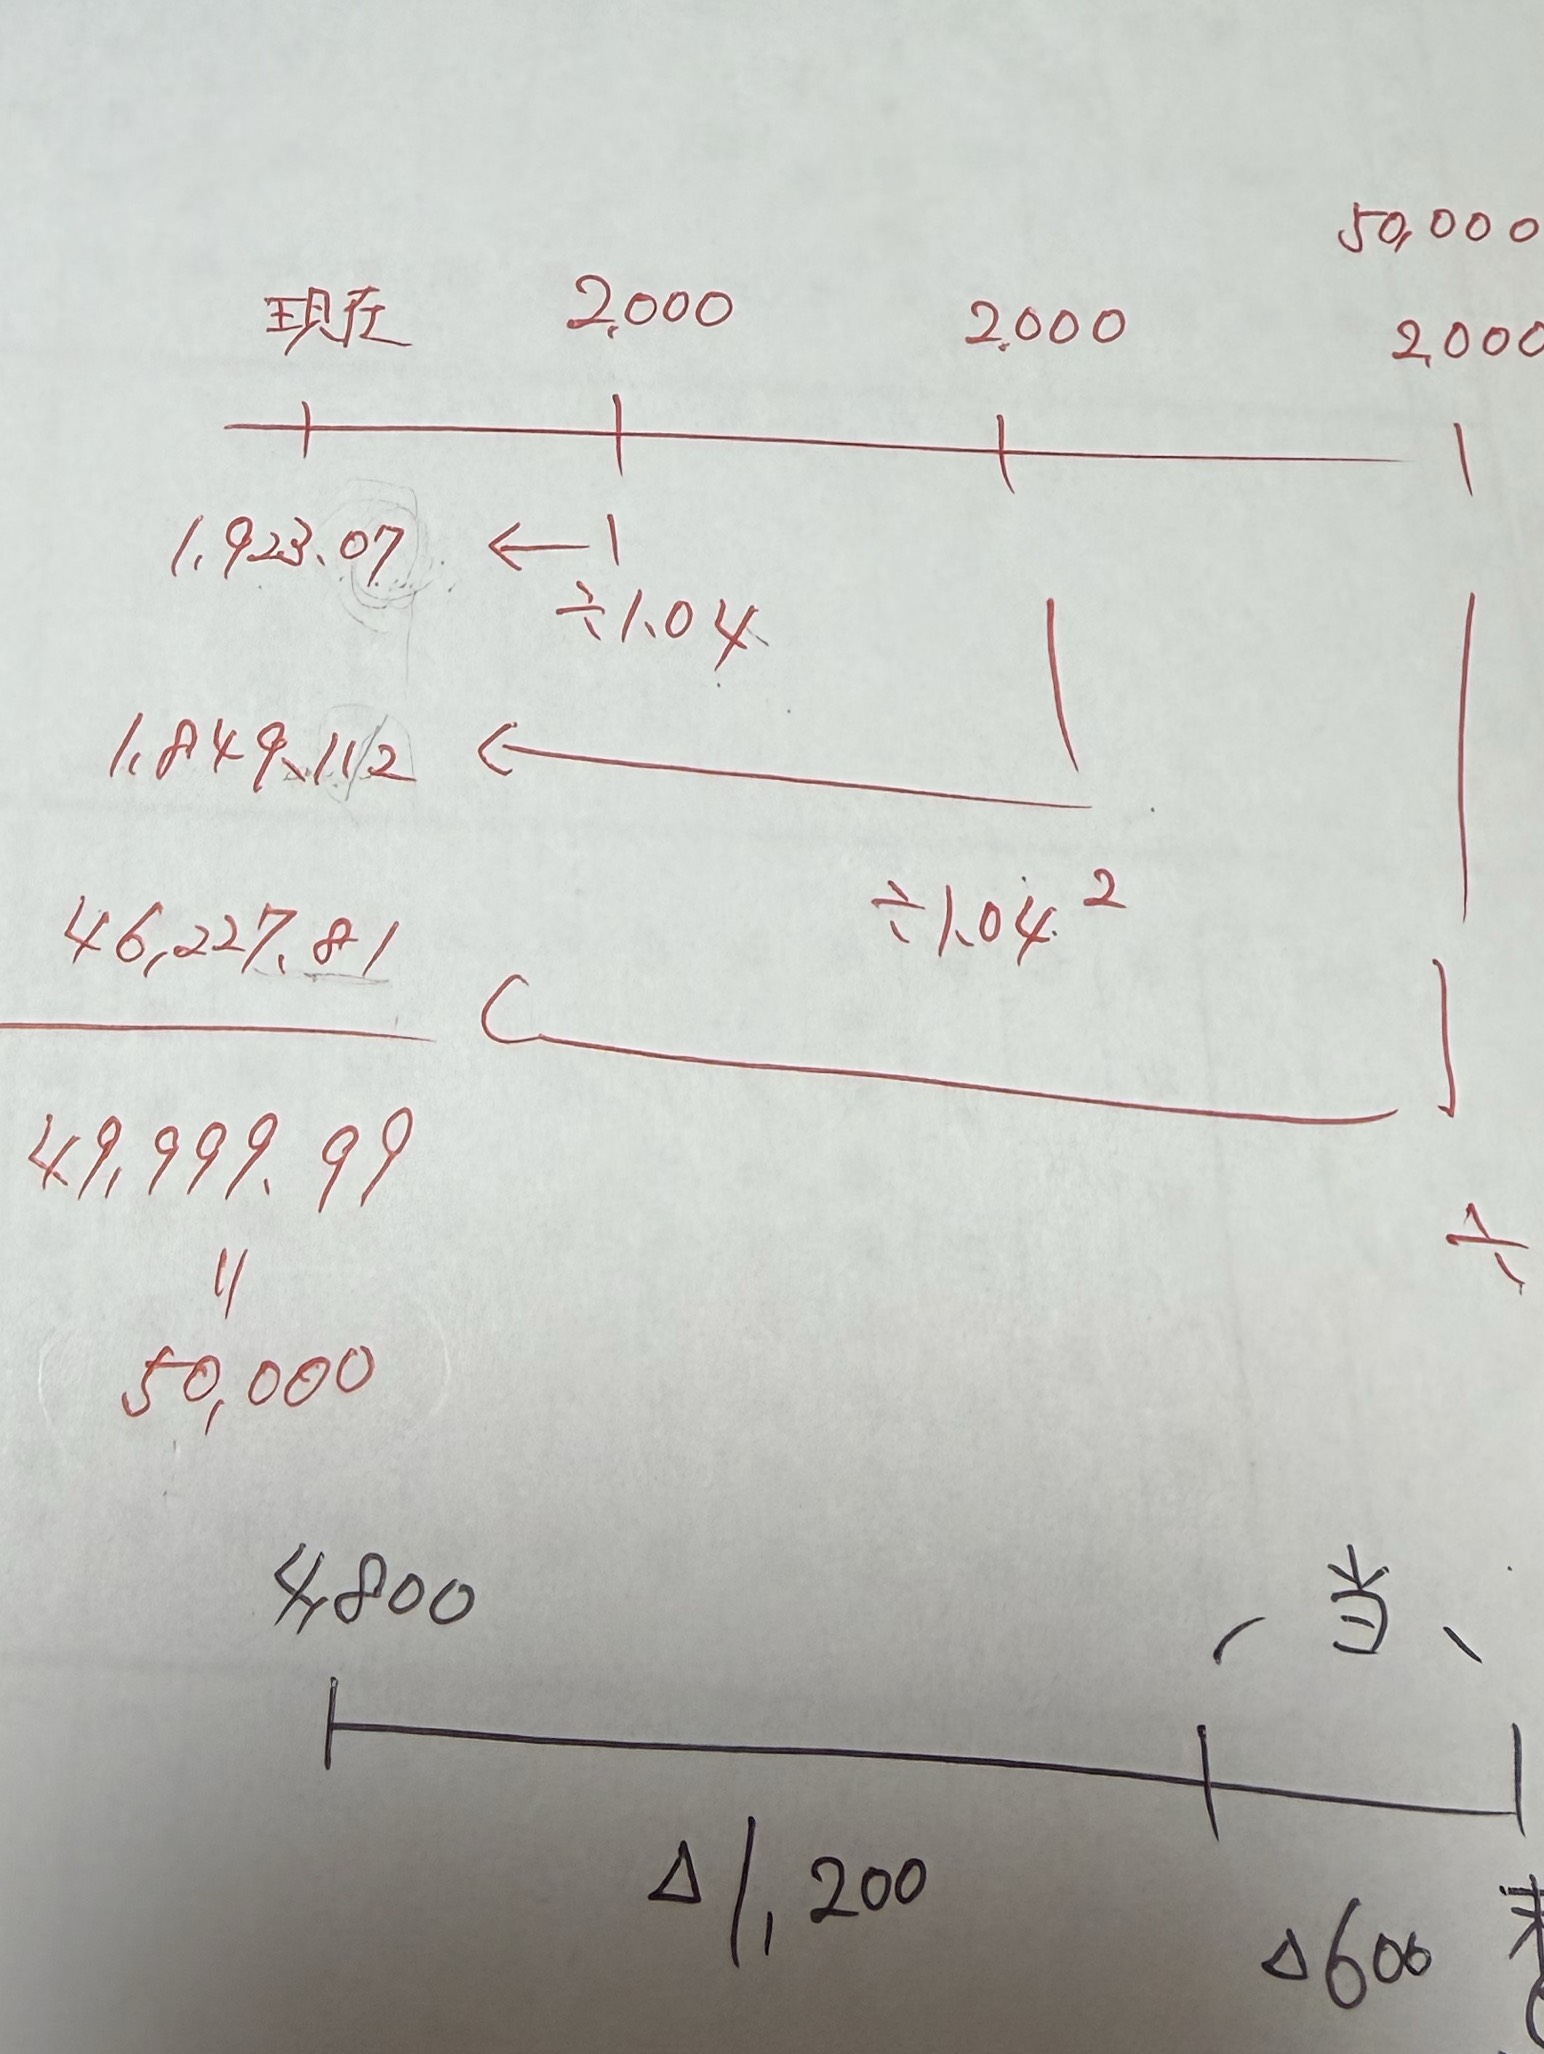 50,000
現在 2,000 2,000 2,000
1,923.07 ← ÷1.04
1,849.112 ←
÷1.04²
46,227.81
49,999.99
÷
〃
50,000
4,800 当
△1,200
△600